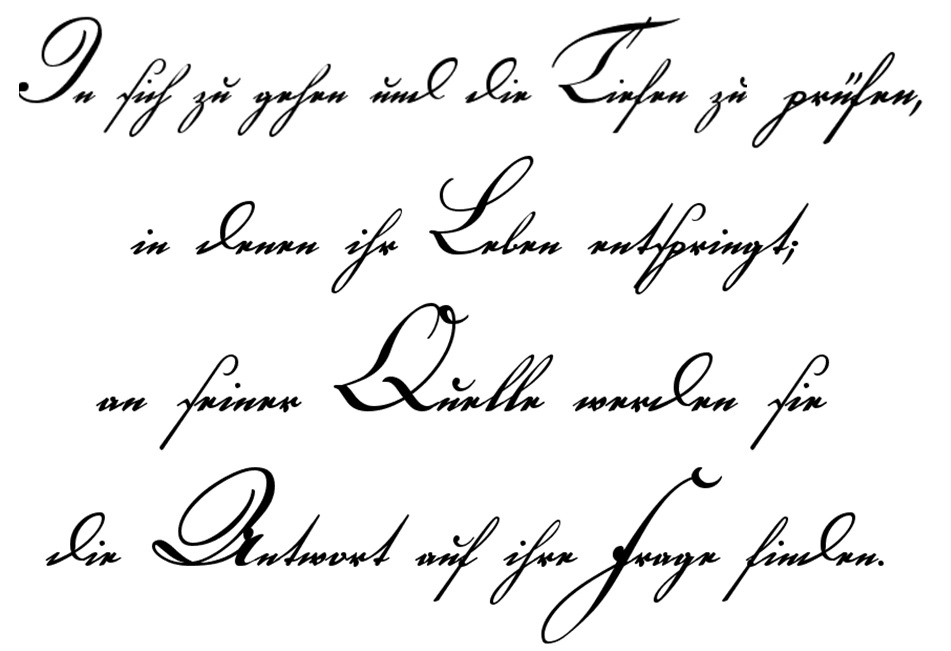 In sich zu gehen und die Tiefen zu prüfen,
in denen ihr Leben entspringt;
an seiner Quelle werden sie
die Antwort auf ihre Frage finden.